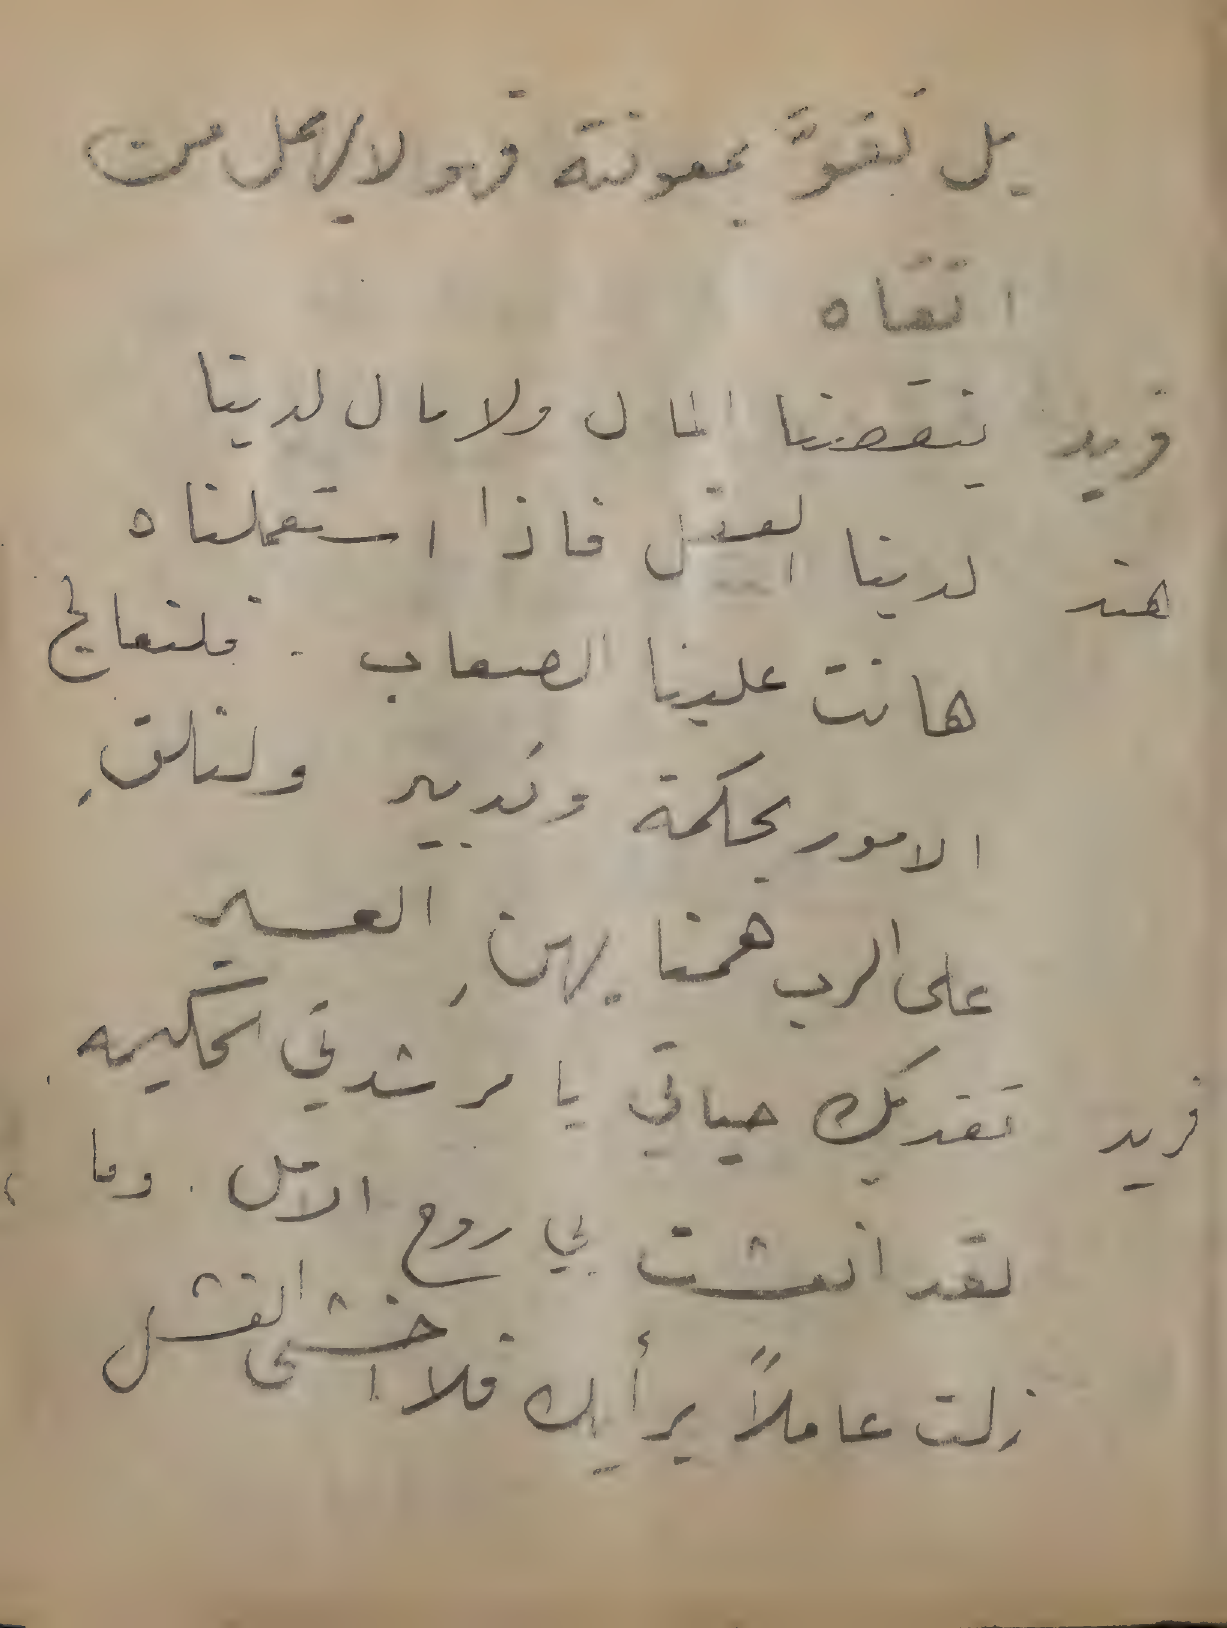 بل تقوَّ بمعونته فهو لا يهمل من
اتقاه
فريد ينقصنا المال ولا مال لدينا
هند لدينا العقل فاذا استعملناه
هانت علينا الصعاب . فلنعالج
الامور بحكمة وتدبير ولنلقِ
على الرب همنا يهنِ العسير
فريد تفديك حياتي يا مرشدتي الحكيمه .
لقد انعشت بي روح الامل . وما
زلت عاملاً برأيك فلا اخشى الفشل